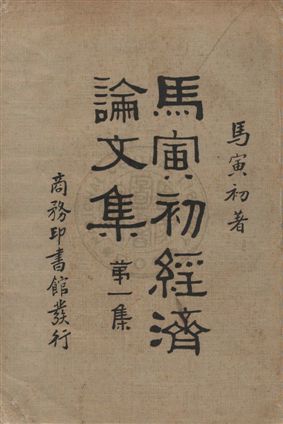 馬寅初著
馬寅初經濟
論文集
第一集
商務印書館發行